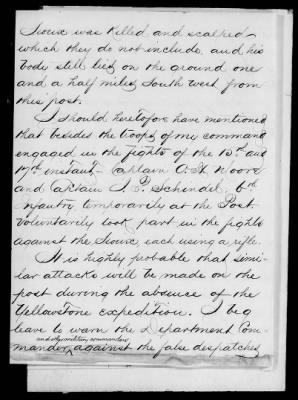 Sioux was killed and scalped
which they do not include and his
body still lies on the ground one
and a half miles South west from
this post.
I should heretofore have mentioned
that besides the troops of my command
engaged in the fights of the 15th and
17th instant, Captain O. H. Moore
and Captain J. P. Schindel, 6th
Infantry temporarily at the Post
voluntarily took part in the fights
against the Sioux each using a rifle.
It is highly probable that simi-
lar attacks will be made on the
post during the absence of the
Yellowstone Expedition. I beg
leave to warn the Department Com-
and expedition commanders
mander, against the false despatches